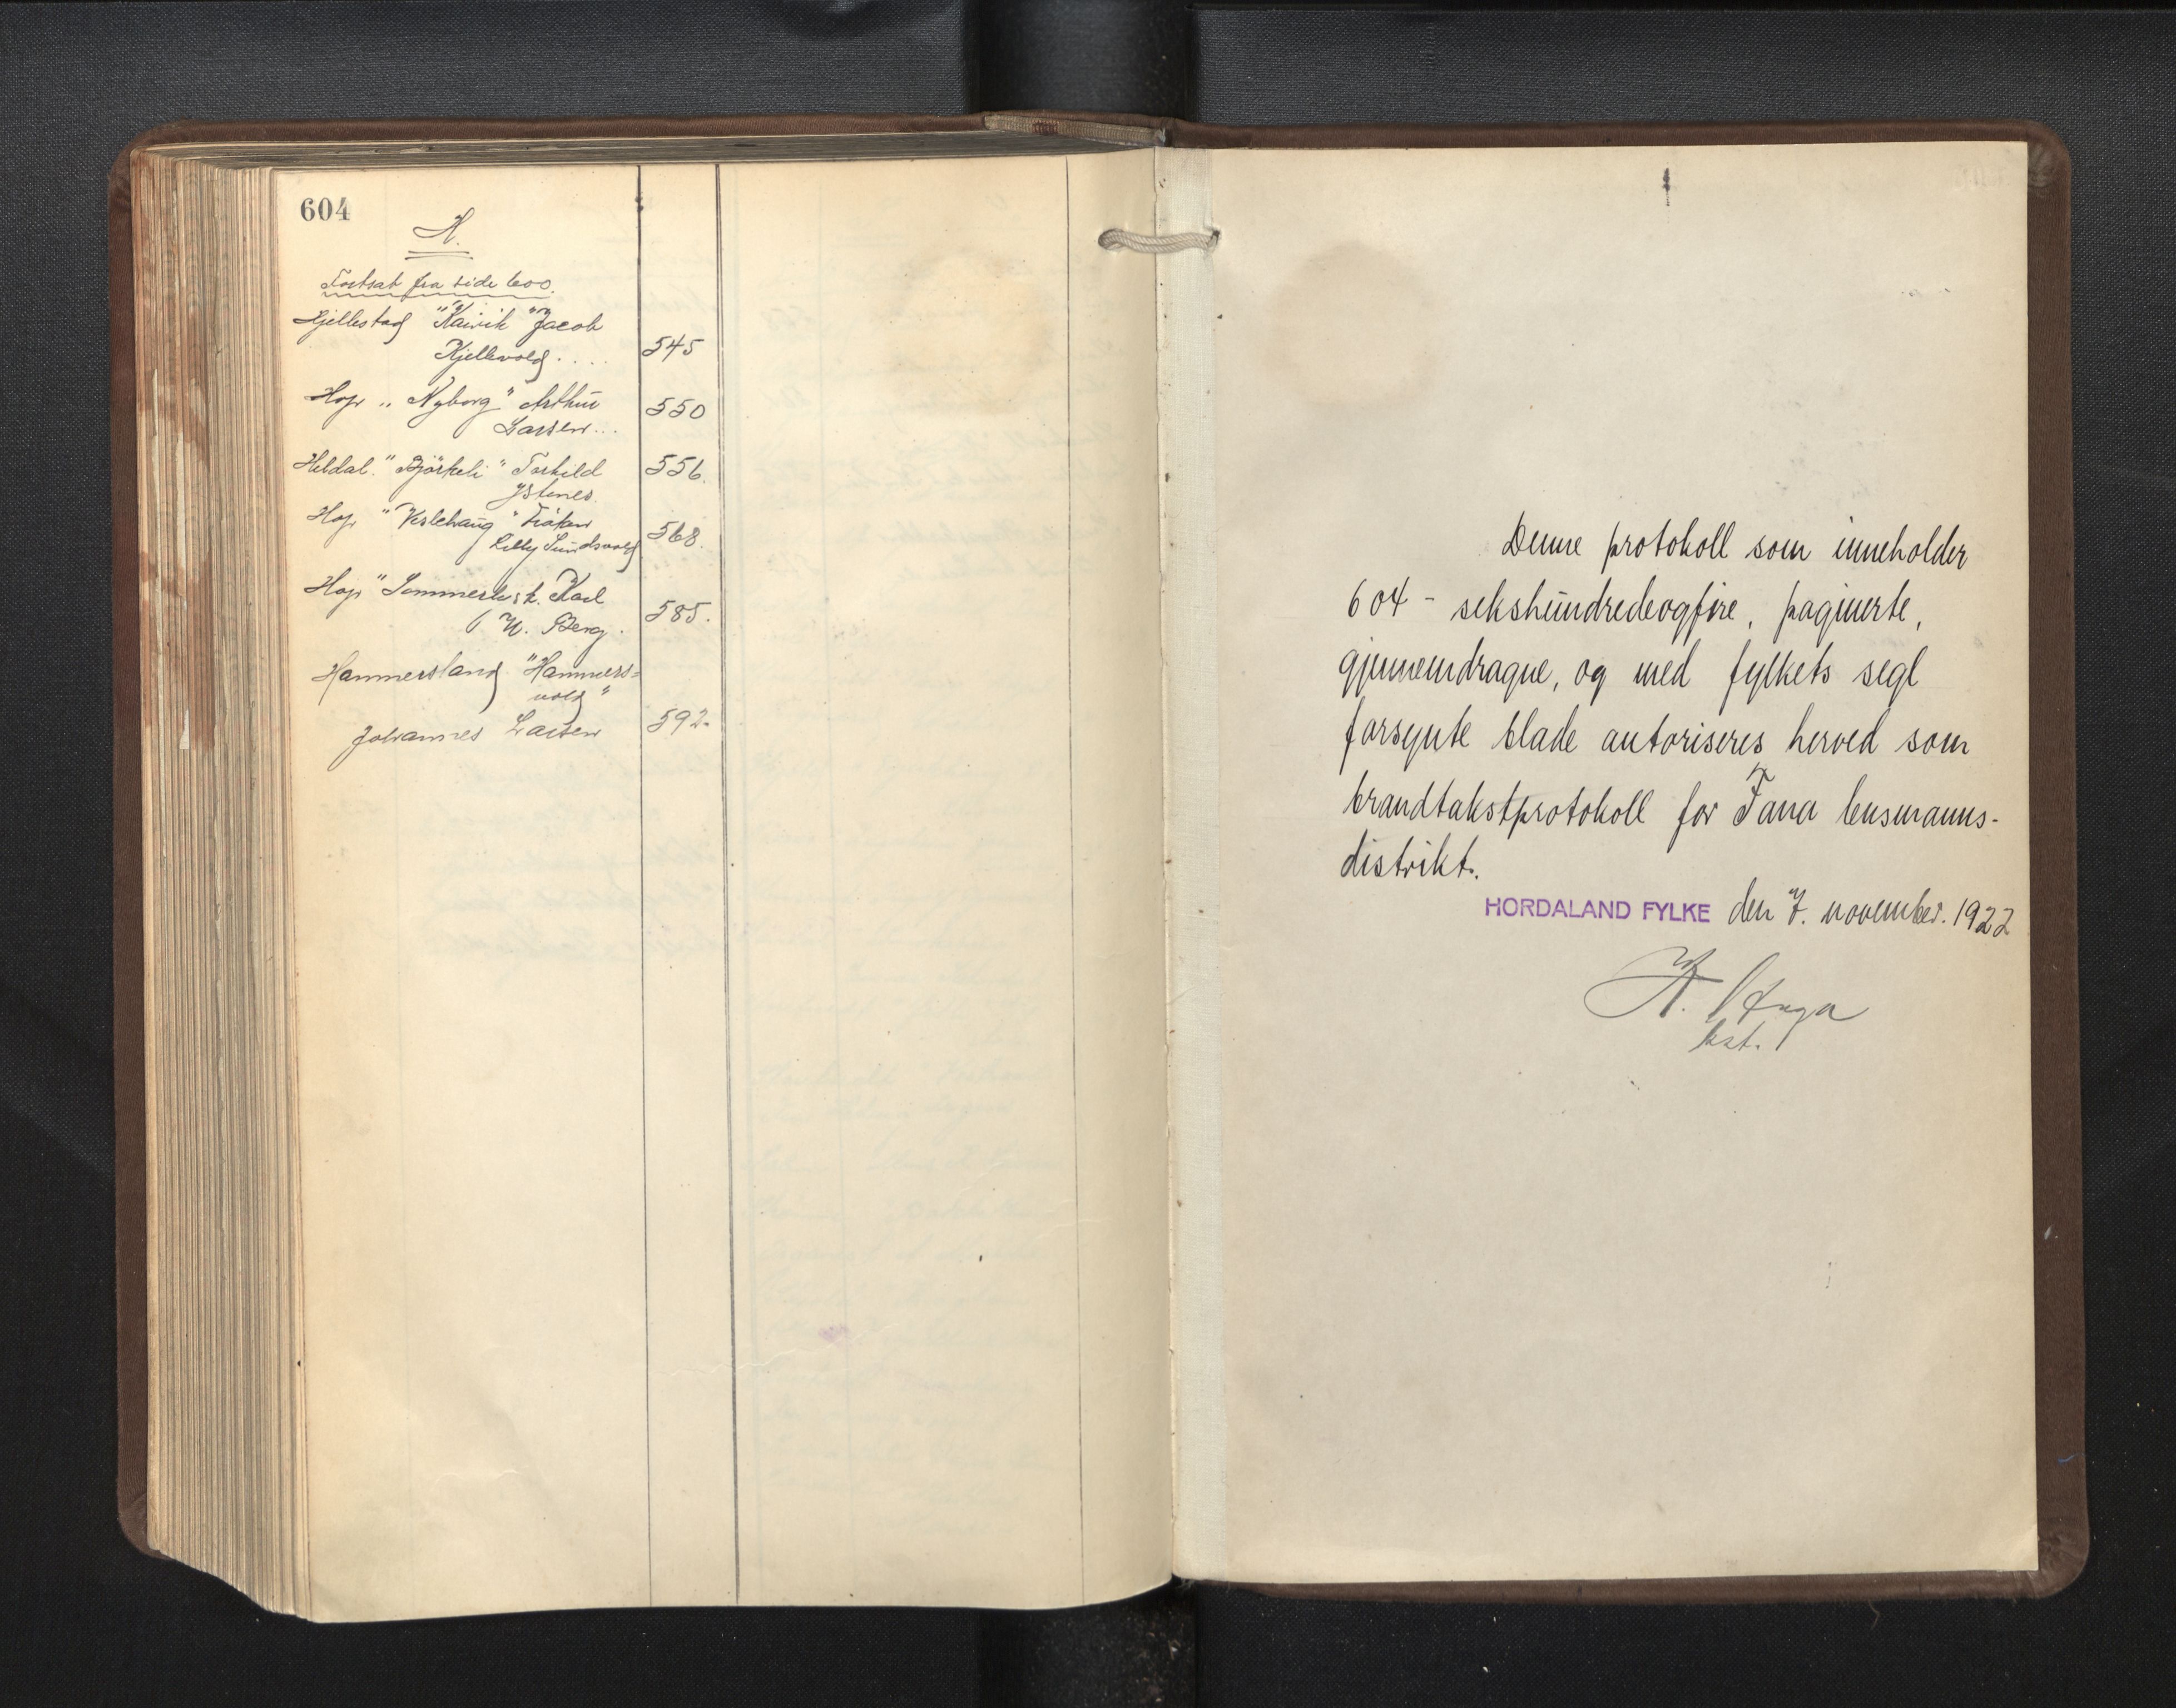 604
H.
Fortsat fra side 600.
Hjellestad "Kaivik" Jacob
Kjellevold . . . . 545
Hop „Nyborg" Arthur
Larsen... 550
Heldal. "Björkeli" Torkild 556.
Ystenes.
Hop "Veslehaug" Fröken
Lilly Sundsvold 568.
Hop "Sommerlyst. Karl
W. Berg. 585.
Hammersland "Hammers=
vold"
Johannes Larsen 592.
Denne protokoll som inneholder
604 - sekshundredeogfire, paginerte,
gjennemdragne, og med fylkets segl
forsynte blade autoriseres herved som
brandtakstprotokoll for Fana lensmanns-
distrikt.
HORDALAND FYLKE den 7. november. 1922